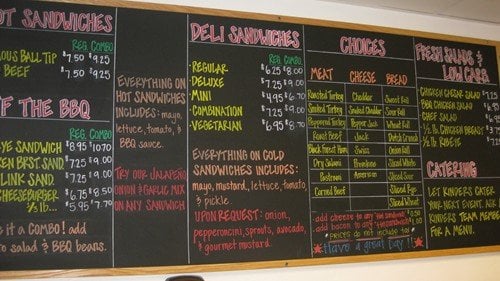 HOT SANDWICHES
REG. COMBO
OUS BALL TIP $7.50 $9.25
BEEF $7.50 $9.25
OFF THE BBQ
REG. COMBO
EYE SANDWICH $8.95 $10.70
KEN BRST. SAND $7.25 $9.00
LINK SAND. $7.25 $9.00
CHEESEBURGER $6.75 $8.50
1/3 lb... $5.95 $7.70
e it a COMBO! add
to salad & BBQ beans.
EVERYTHING ON
HOT SANDWICHES
INCLUDES: mayo,
lettuce, tomato, &
BBQ sauce.
TRY OUR JALAPEÑO
ONION & GARLIC MIX
ON ANY SANDWICH
DELI SANDWICHES
REG. COMBO
REGULAR $6.25 $8.00
DELUXE $7.25 $9.00
MINI $4.95 $6.70
COMBINATION $7.25 $9.00
VEGETARIAN $6.95 $8.70
EVERYTHING ON COLD
SANDWICHES INCLUDES:
mayo, mustard, lettuce, tomato
& pickle
UPON REQUEST: onion,
pepperoncini, sprouts, avocado,
& gourmet mustard.
CHOICES
MEAT CHEESE BREAD
Roasted Turkey Cheddar Sweet Roll
Smoked Turkey Smoked Cheddar Sour Roll
Peppered Turkey Pepper Jack Wheat Roll
Roast Beef Jack Dutch Crunch
Black Forest Ham Swiss Onion Roll
Dry Salami Provolone Sliced White
Pastrami American Sliced Sour
Corned Beef Sliced Rye
Sliced Wheat
add cheese to any hot sandwich $0.50
add bacon to any sandwich $1.00
*PRICES do not include tax*
Have a great day!!
FRESH SALADS &
LOW CARB
CHICKEN CAESAR SALAD $7.25
BBQ CHICKEN SALAD
CHEF SALAD
1/2 lb. CHICKEN BREAST
1/2 lb. RIBEYE
CATERING
LET KINDERS CATER
YOUR NEXT EVENT. ASK
KINDERS TEAM MEMBER
FOR A MENU.